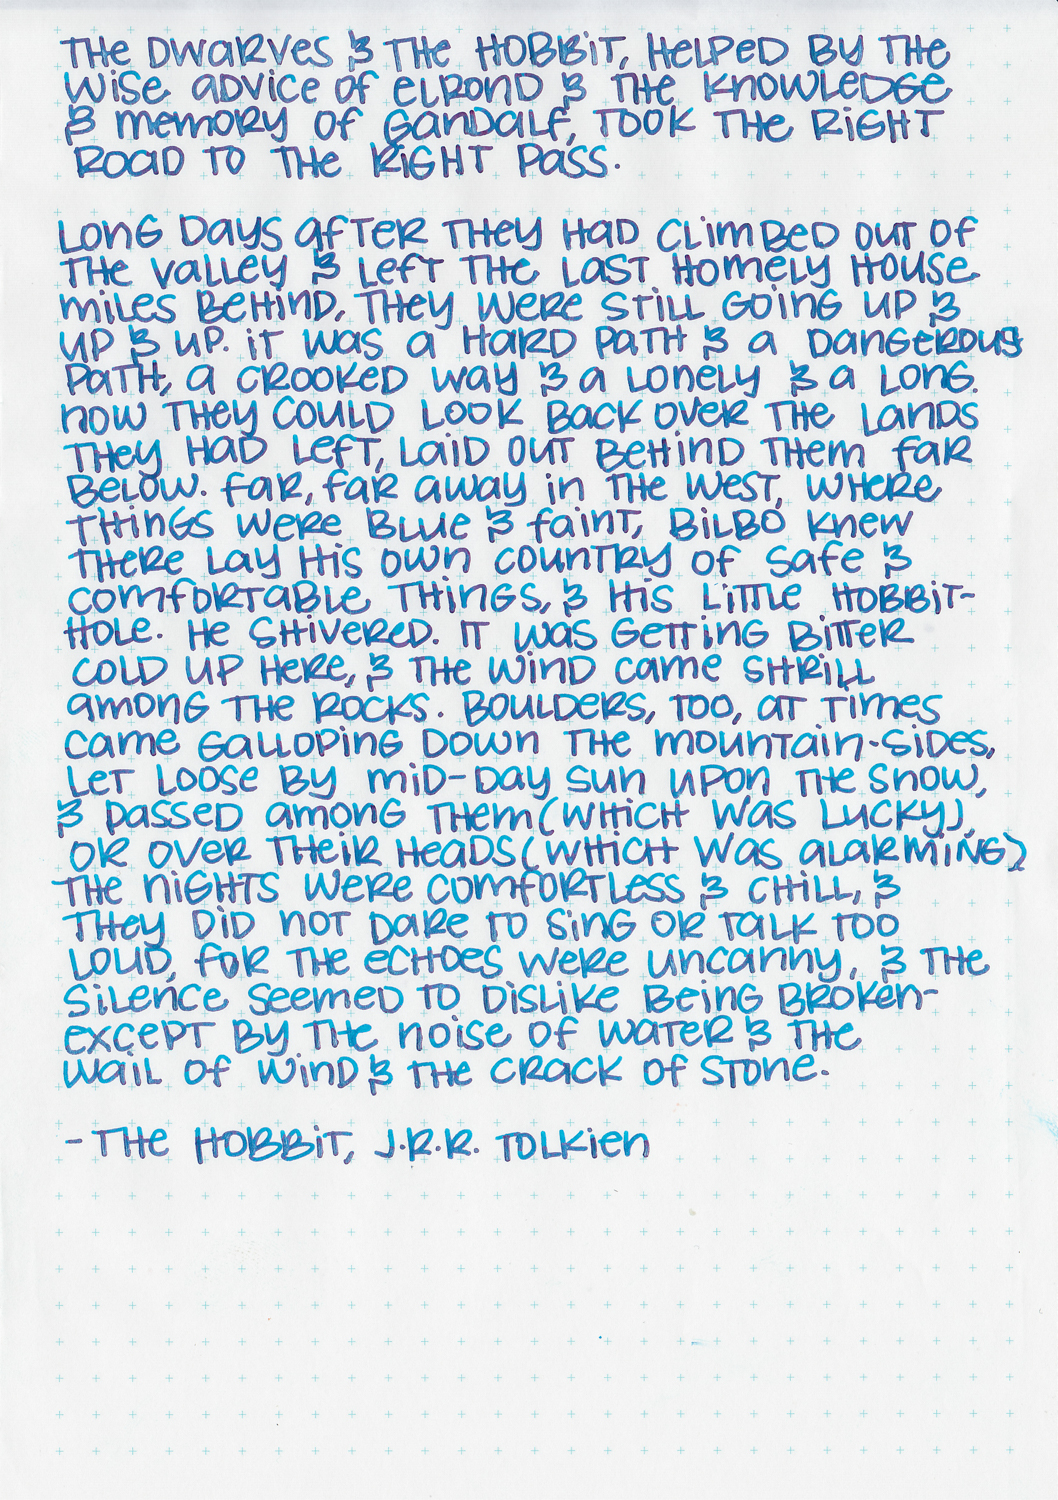 The Dwarves & the Hobbit, helped by the
wise advice of Elrond & the knowledge
& memory of Gandalf, took the right
road to the right pass.

Long days after they had climbed out of
the valley & left the Last Homely House
miles behind, they were still going up &
up & up. It was a hard path & a dangerous
path, a crooked way & a lonely & a long.
Now they could look back over the lands
they had left, laid out behind them far
below. Far, far away in the West, where
things were blue & faint, Bilbo knew
there lay his own country of safe &
comfortable things, & his little hobbit-
hole. He shivered. It was getting bitter
cold up here, & the wind came shrill
among the rocks. Boulders, too, at times
came galloping down the mountain-sides,
let loose by mid-day sun upon the snow,
& passed among them (which was lucky),
or over their heads (which was alarming).
The nights were comfortless & chill, &
they did not dare to sing or talk too
loud, for the echoes were uncanny, & the
silence seemed to dislike being broken-
except by the noise of water & the
wail of wind & the crack of stone.

- The Hobbit, J.R.R. Tolkien